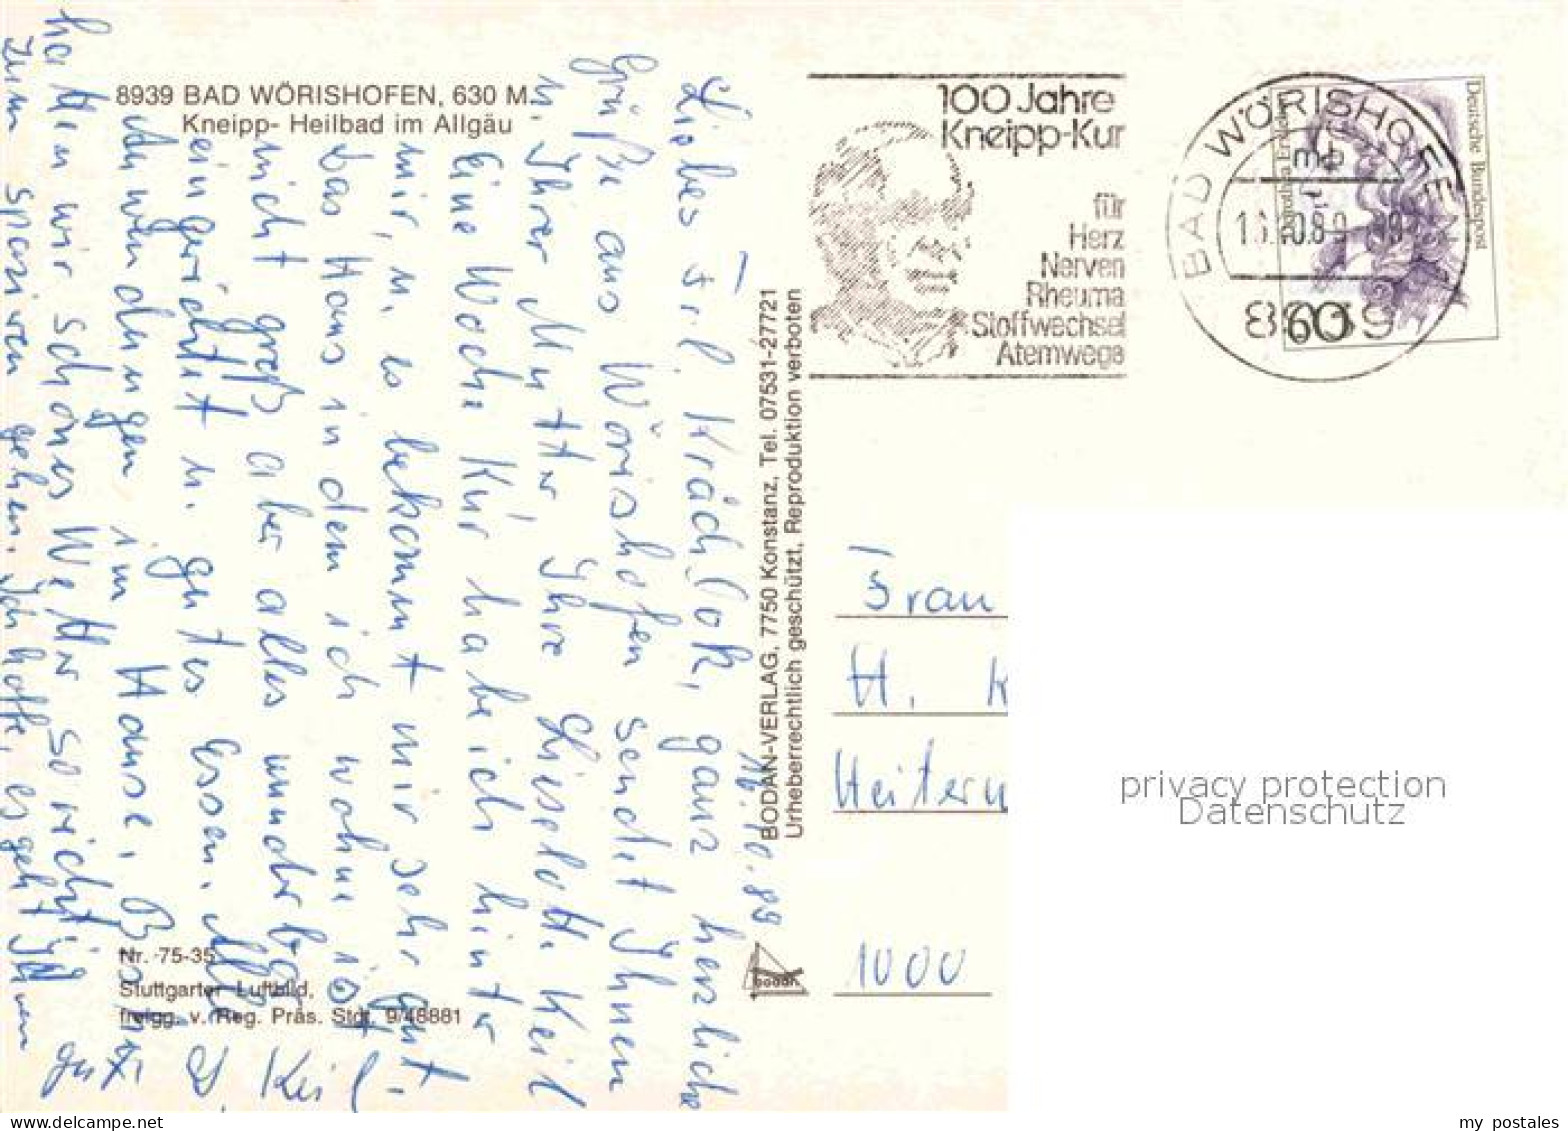 8939 BAD WÖRISHOFEN, 630 M.
Kneipp- Heilbad im Allgäu
16.10.89
Liebes Frl. ganz herzliche
Grüße aus Wörishofen sendet Ihnen
u. Ihrer Mutter, Ihre Liselotte Keil
Eine Woche Kur habe ich hinter
mir, u. es bekommt mir sehr gut.
Das Haus in dem ich wohne ist
nicht groß aber alles wunderbar
eingerichtet u. gutes Essen. Alle
Anwendungen im Hause. Bis jetzt
hatten wir schönes Wetter so richtig
zum spazieren gehen. Ich hoffe, es geht Ihnen
gut
D. Keil
Nr. 75-35
Stuttgarter Luftbild,
freigg. v. Reg. Präs. Stgt. 9/48881
BODAN-VERLAG, 7750 Konstanz, Tel. 07531-27721
Urheberrechtlich geschützt, Reproduktion verboten
BODAN
100 Jahre
Kneipp-Kur
für
Herz
Nerven
Rheuma
Stoffwechsel
Atemwege
BAD WÖRISHOFEN
mb
8939
Deutsche Bundespost
60
Frau
H. K
Heitern
1000
privacy protection
Datenschutz
my postales